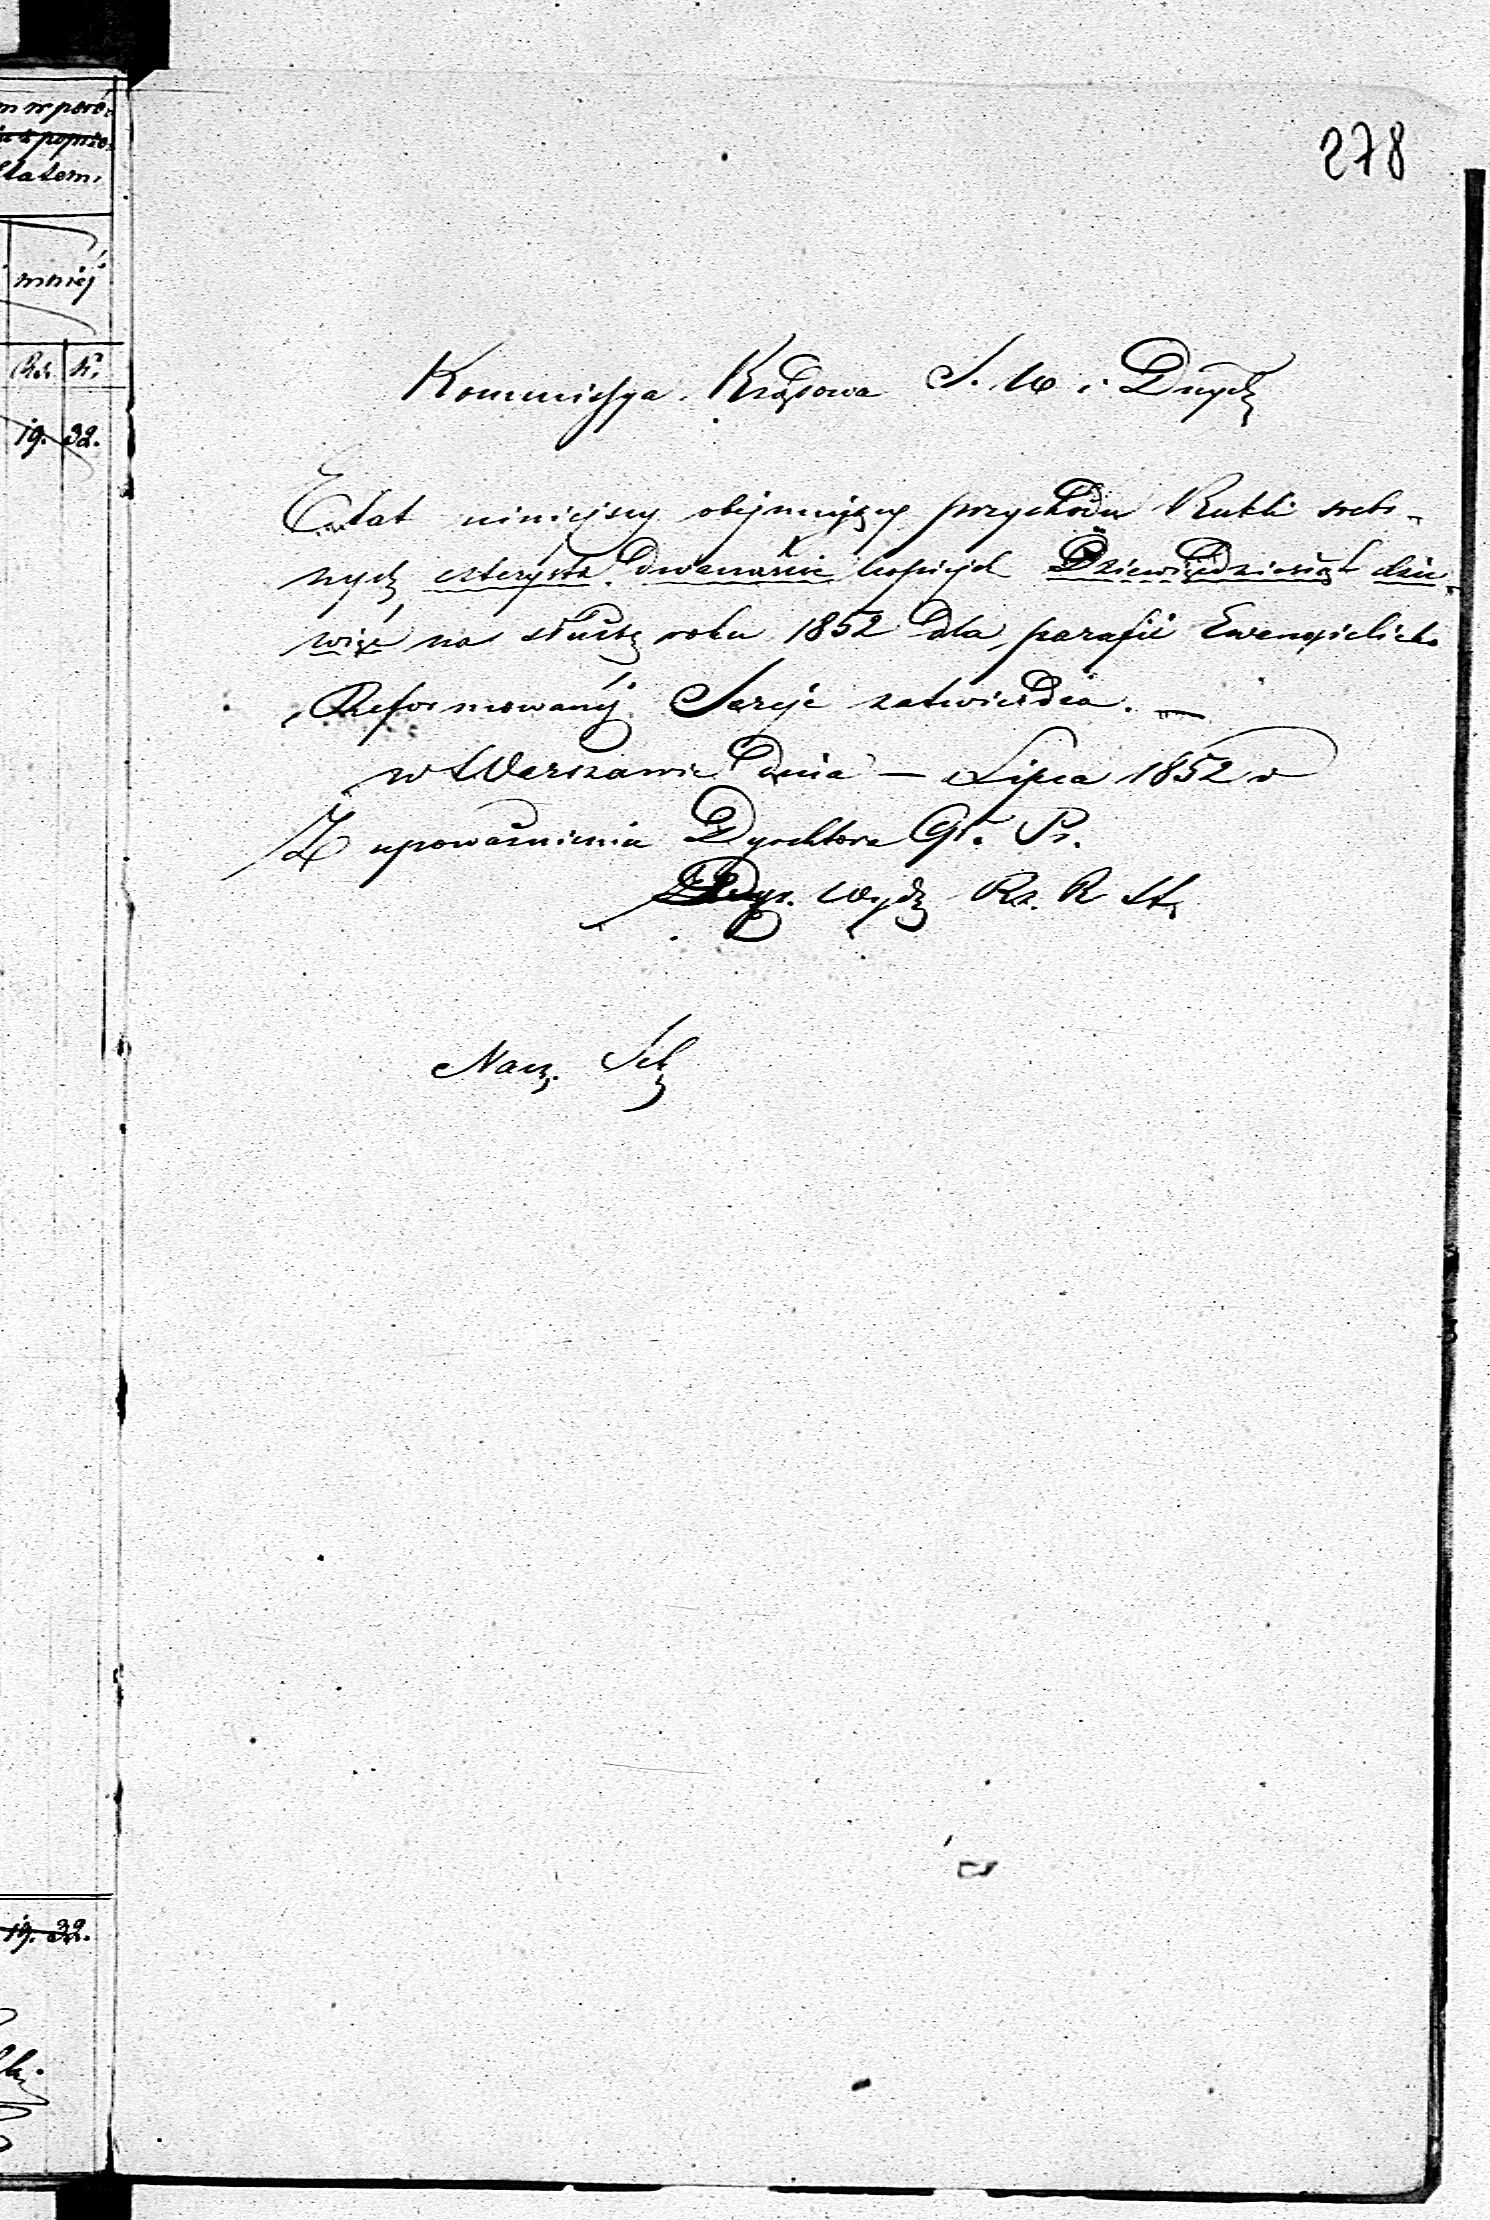 278
m w poró-
niu z poprze.
Etatem.
mniéj
Rsr. K.
19. 32.
Kommissya Rządowa S. W. i Duych
Etat niniejszy obejmujący przychodu Rubli srebr-
nych czterysta dwanaście kopiejek Dziewięćdziesiąt dzie-
więć na służbę roku 1852 dla parafii Ewangielicko
Reformowanéj Sereje zatwierdza. —
w Warszawie dnia — Lipca 1852 r
Z upoważnienia Dyrektora Gł. Pr.
Dyr. Wydz Rz. R. St.
Nacz. Sek
19. 32.